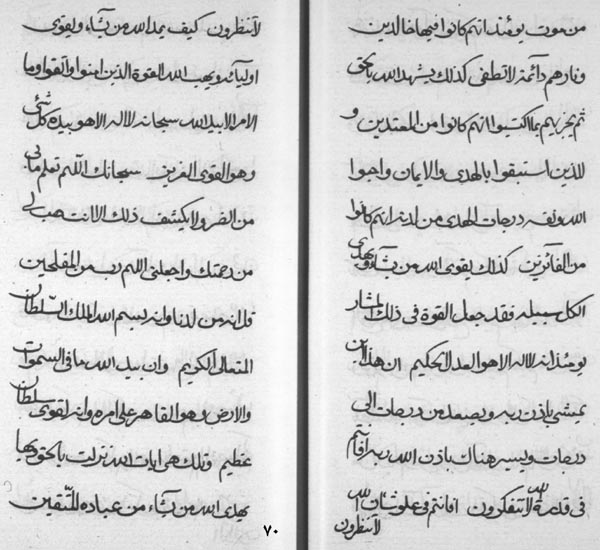 من موت يومئذ انهم كانوا فيها خالدين
ونارهم دائمة لا تطفى كذلك يشهد الله بالحق
ثم يجزيهم بما اكتسبوا انهم كانوا من المعتدين و
للذين استبقوا بالهدى والايمان واجوا
الله ونقه درجات الهدى من لدنه انهم كانوا
من الفائزين كذلك يقوى الله من يشاء ويهدى
الكل سبيله فقد جعل القوة فى ذلك المثار
يومئذ انه لا اله الا هو العدل الحكيم ان هذا لمن
يمشى باذن ربه ويصعد من درجات الى
درجات ويسير هناك باذن الله ربه افانتم
فى قدرة الله لا تتفكرون افانتم فى علو شان الله
لا تنظرون
لا تنظرون كيف يمد الله من يشاء ويقوى
اوليائه ويهب الله القوة الذين امنوا واتقوا وما
الامر الا بيد الله سبحانه لا اله الا هو بيده كل شئ
وهو القوى العزيز سبحانك اللهم تعلم ما بى
من الضر ولا يكشف ذلك الا انت هب لى
من رحمتك واجعلنى اللهم رب من المفلحين
قل انه من لدنا وانه بسم الله الملك السلطان
المتعال الكريم وان بيد الله ما فى السموات
والارض وهو القاهر على امره وانه لقوى سلطان
عظيم وتلك هى ايات الله نزلت بالحق يهدى بها
يهدى الله من يشاء من عباده المتقين
٧٠